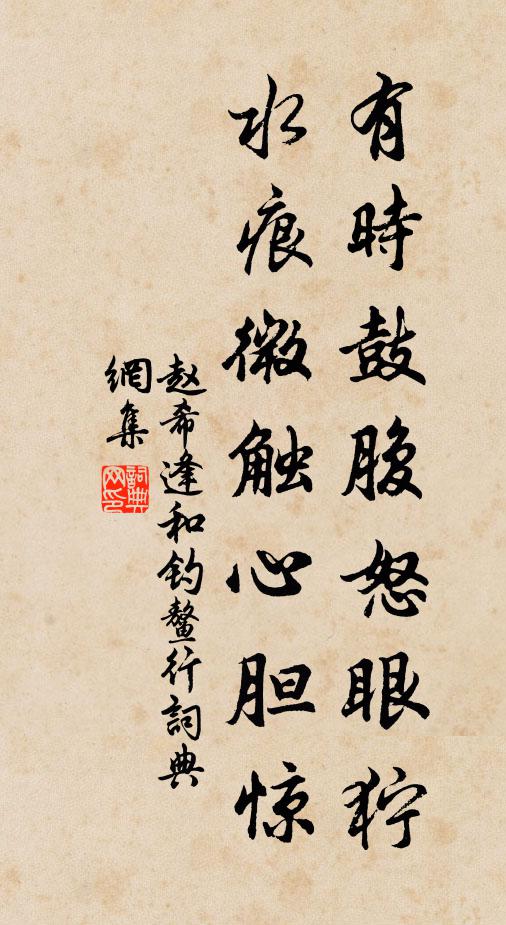 有時鼓腹怒眼狞
水痕微触心胆惊
赵希逢和钓鳌行詞典
網集
詞典网印